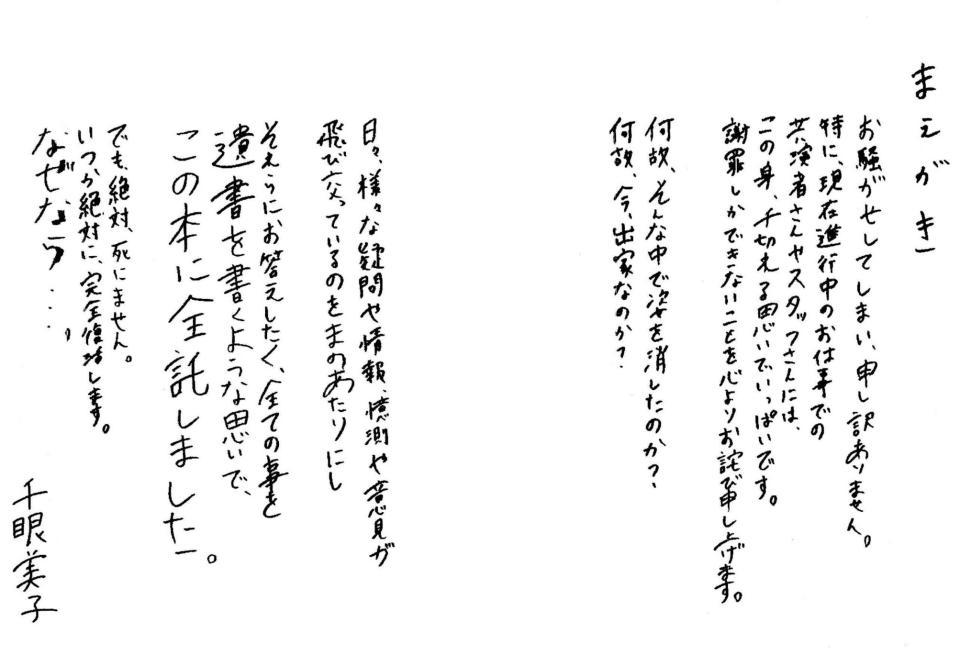 まえがき
お騒がせしてしまい、申し訳ありません。
特に、現在進行中のお仕事での
共演者さんやスタッフさんには、
この身、千切れる思いでいっぱいです。
謝罪しかできないことを心よりお詫び申し上げます。
何故、そんな中で姿を消したのか？
何故、今、出家なのか？
日々、様々な疑問や情報、憶測や意見が
飛び交っているのをまのあたりにし
それらにお答えしたく、全ての事を
遺書を書くような思いで、
この本に全託しました。
でも、絶対、死にません。
いつか絶対に、完全復活します。
なぜなら・・・。
千眼美子